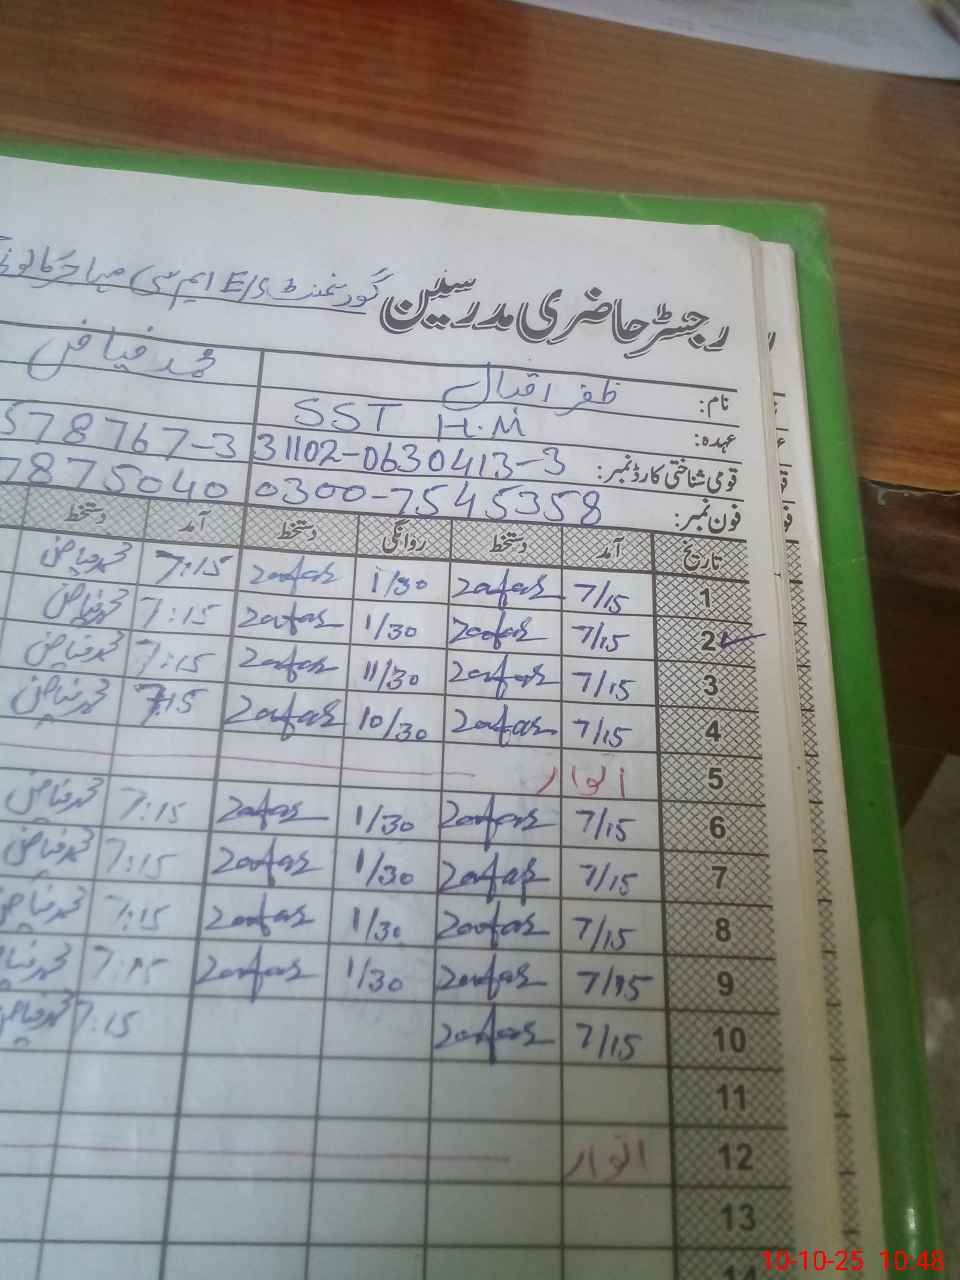 رجسٹر حاضری مدرسین گورنمنٹ E/S ایم سی
نام: ظفر اقبال محمد فیاض
عہدہ: SST H.M
قومی شناختی کارڈ نمبر: 31102-0630413-3 578767-3
فون نمبر: 0300-7545358 7875040
تاریخ آمد دستخط روانگی دستخط آمد دستخط
1 7/15 Zafar 1/30 Zafar 7:15 محمد فیاض
2 7/15 Zafar 1/30 Zafar 7:15 محمد فیاض
3 7/15 Zafar 11/30 Zafar 7:15 محمد فیاض
4 7/15 Zafar 10/30 Zafar 7:15 محمد فیاض
5 اتوار
6 7/15 Zafar 1/30 Zafar 7:15 محمد فیاض
7 7/15 Zafar 1/30 Zafar 7:15 محمد فیاض
8 7/15 Zafar 1/30 Zafar 7:15 محمد فیاض
9 7/15 Zafar 1/30 Zafar 7:15 محمد فیاض
10 7/15 Zafar 7:15 محمد فیاض
11
12 اتوار
13
14
10-10-25 10:48